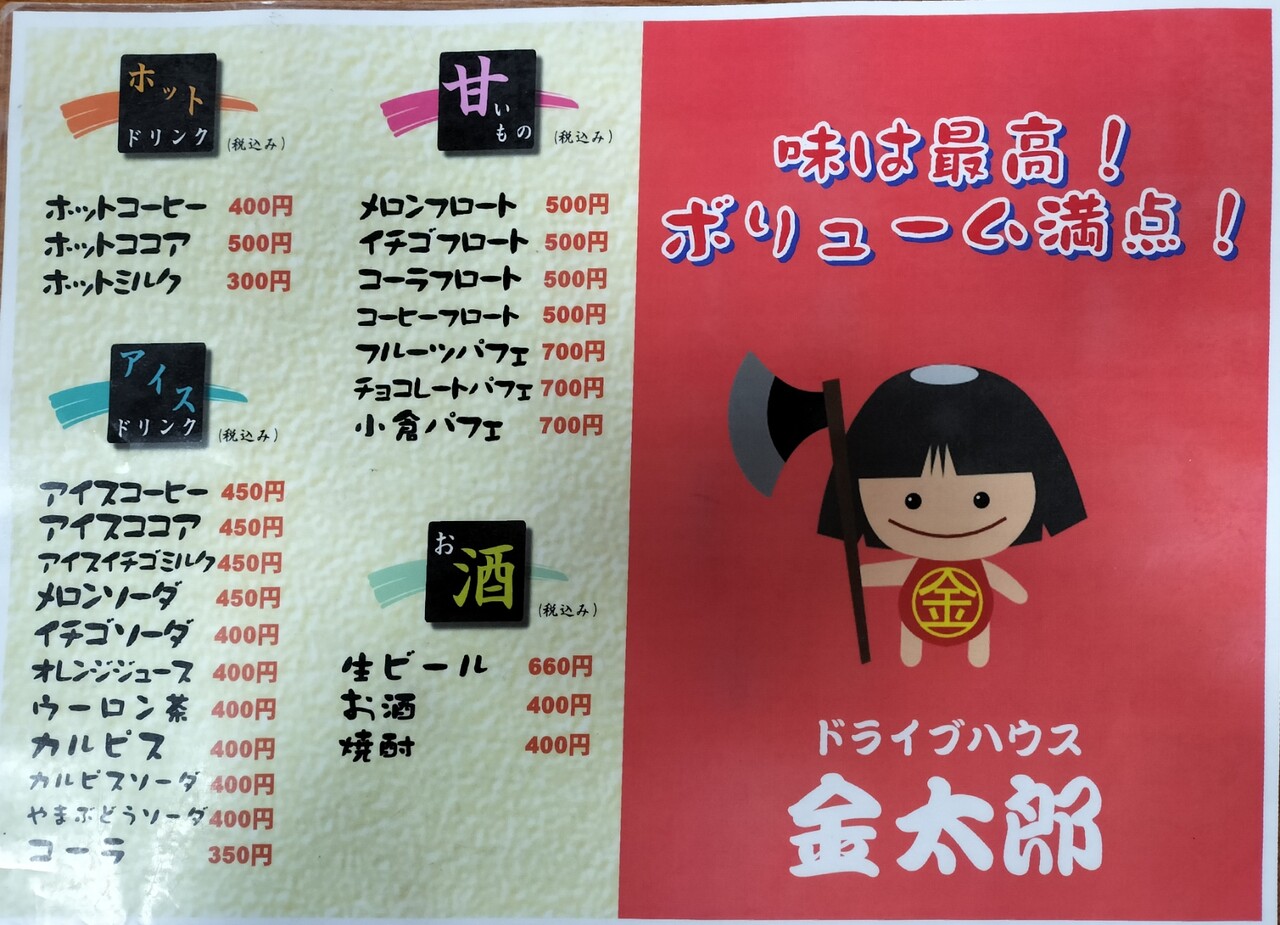 ホット
ドリンク (税込み)
ホットコーヒー 400円
ホットココア 500円
ホットミルク 300円
アイス
ドリンク (税込み)
アイスコーヒー 450円
アイスココア 450円
アイスイチゴミルク 450円
メロンソーダ 450円
イチゴソーダ 400円
オレンジジュース 400円
ウーロン茶 400円
カルピス 400円
カルピスソーダ 400円
やまぶどうソーダ 400円
コーラ 350円
甘い
もの (税込み)
メロンフロート 500円
イチゴフロート 500円
コーラフロート 500円
コーヒーフロート 500円
フルーツパフェ 700円
チョコレートパフェ 700円
小倉パフェ 700円
お酒 (税込み)
生ビール 660円
お酒 400円
焼酎 400円
味は最高！
ボリューム満点！
金
ドライブハウス
金太郎